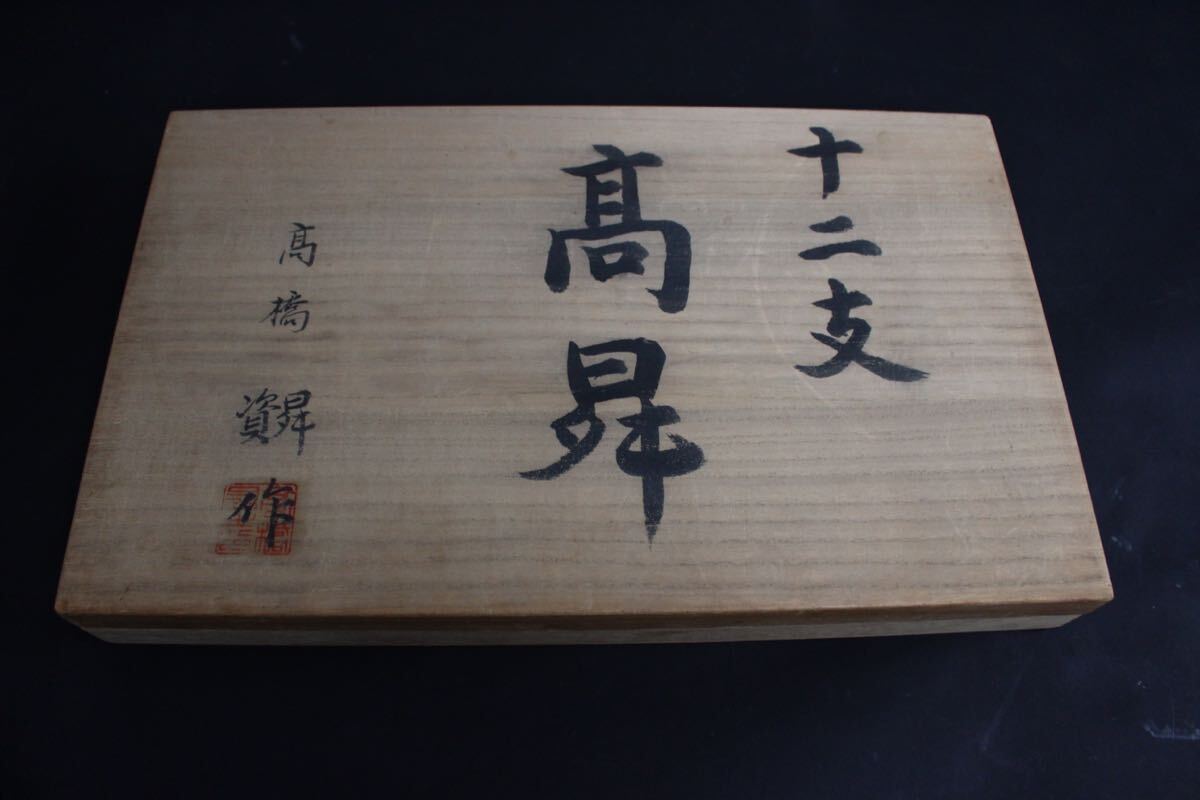 十二支
髙昇
髙橋 昇資 作